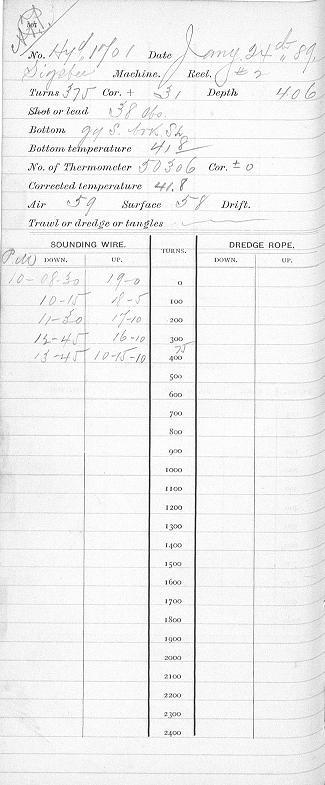 No. Hyd. 1701 Date Jany. 24th 89,
Sigsbee Machine. Reel. #2
Turns 375 Cor. + 31 Depth 406
Shot or lead 38 lbs.
Bottom gy S. brk. Sh.
Bottom temperature 41.8
No. of Thermometer 50306 Cor. ± 0
Corrected temperature 41.8
Air 59 Surface 58 Drift.
Trawl or dredge or tangles
SOUNDING WIRE. TURNS. DREDGE ROPE.
P.M. DOWN. UP. DOWN. UP.
10-08-30 19-0 0
10-15 18-5 100
11-30 17-10 200
12-45 16-10 300
13-45 10-15-10 75 400
500
600
700
800
900
1000
1100
1200
1300
1400
1500
1600
1700
1800
1900
2000
2100
2200
2300
2400